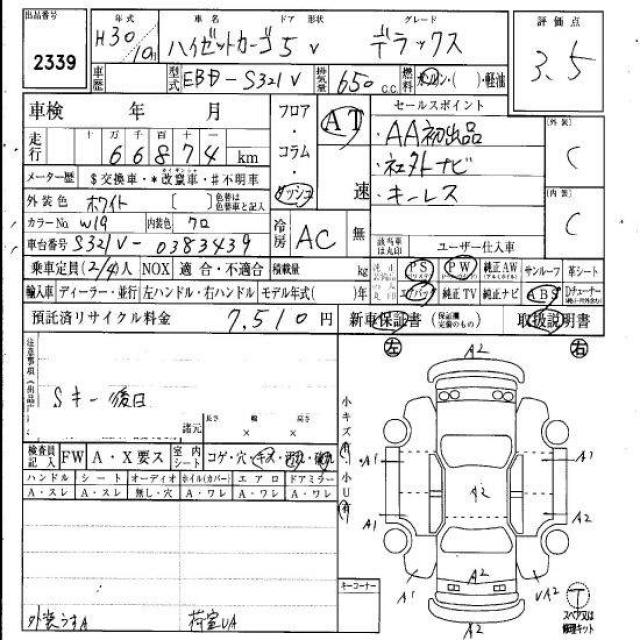 出品番号 年式 車名 ドア 形状 グレード 評価点
2339 H30/10月 ハイゼットカーゴ 5 V デラックス 3.5
車歴 型式 EBD-S321V 排気量 650 c.c. 燃料 ガソリン・( )・軽油
車検 年 月 フロア・コラム・ダッシュ AT 速 セールスポイント
走行 十 万 千 百 十 一
6 6 8 7 4 km
・AA初出品
・社外ナビ
・キーレス
[外装] C
[内装] C
メーター歴 $交換車・*改竄車・#不明車
外装色 ホワイト [ ] 色替は色替車と記入
カラーNo. W19 内装色 クロ
車台番号 S321V-0383439
冷房 AC 無
該当車は丸印 ユーザー仕入車
乗車定員(2/4)人 NOX 適合・不適合 積載量 kg PS PW 純正AW サンルーフ 革シート
輸入車 ディーラー・並行 左ハンドル・右ハンドル モデル年式( )年 エアバック 純正TV 純正ナビ ABS Dチューナー
預託済リサイクル料金 7,510円 新車保証書 (保証欄完備のもの) 取扱説明書
注意事項 左 右
Sキー後日
諸元 長さ × 幅 × 高さ
小キズ有・小U有
検査員記入 FW A・X要ス 室内シート コゲ・穴・キズ・汚れ・破れ
ハンドル シート オーディオ ホイル(カバー) エアロ ドアミラー
A・スレ A・スレ 無し・穴 A・ワレ A・ワレ A・ワレ
A2
A1 A2 A1
A1 A2
A1 A2 UA2
A2
キーコーナー
外装うすA 荷室UA
T
スペア又は修理キット